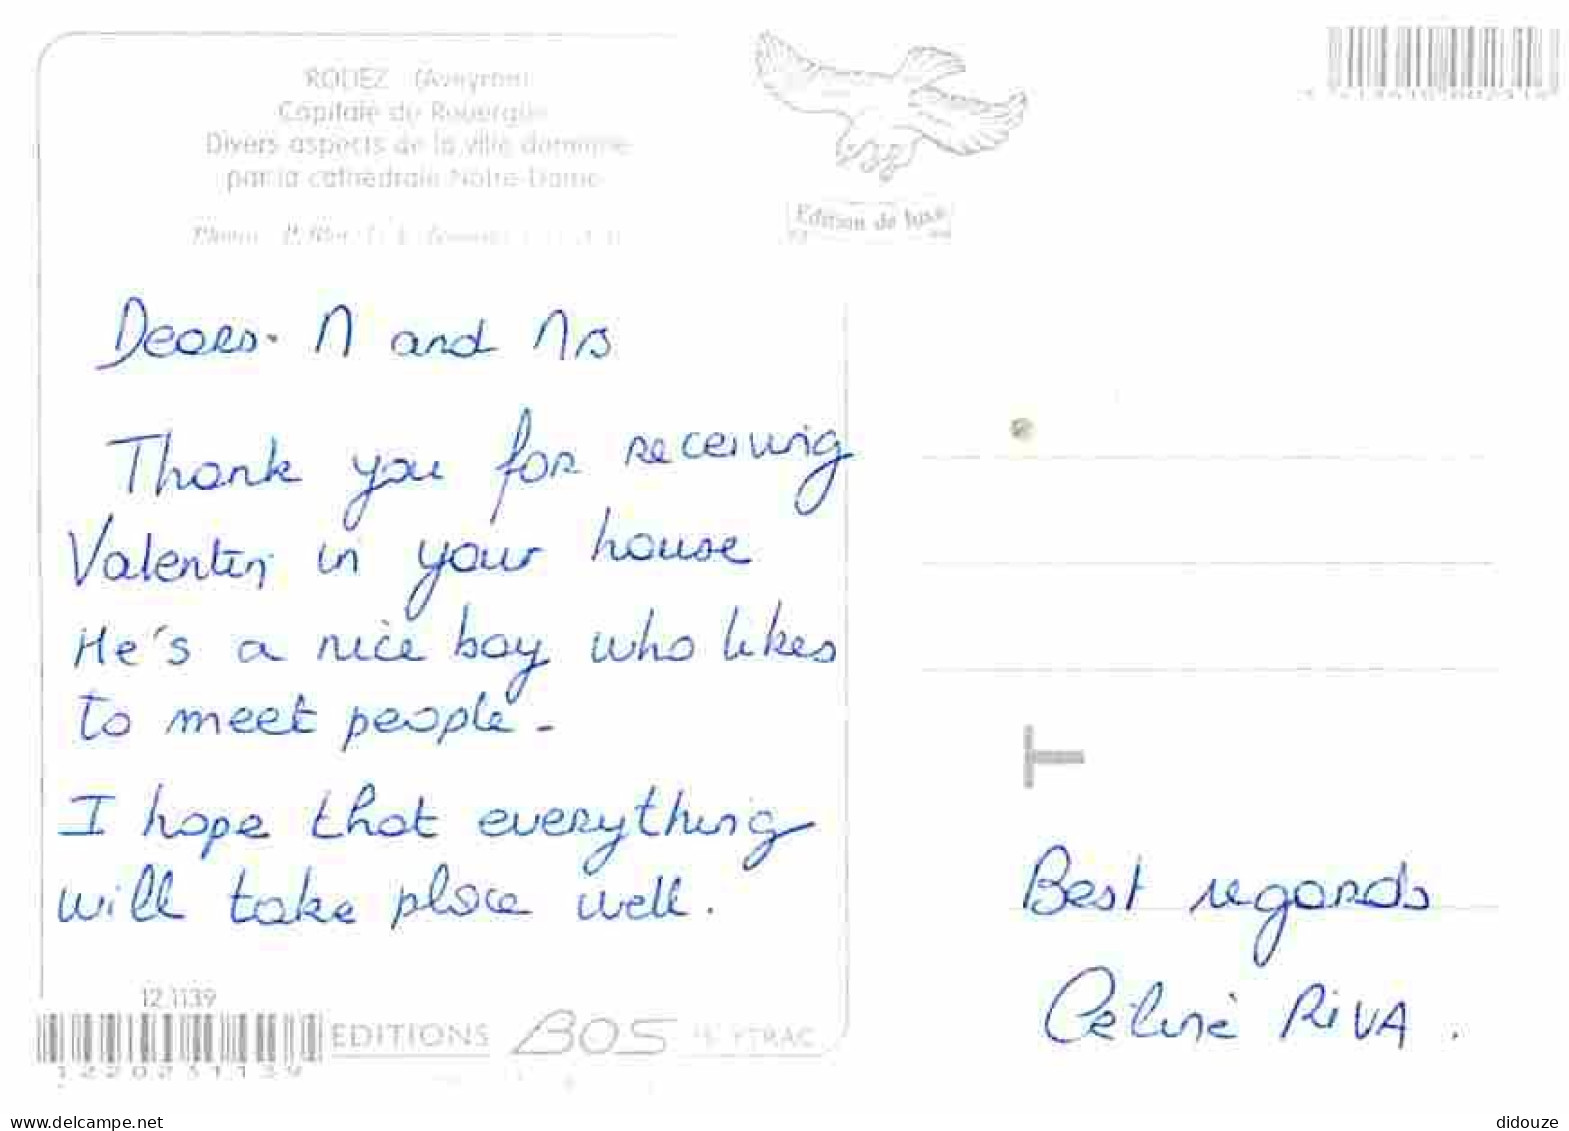 RODEZ (Aveyron)
Capitale du Rouergue
Divers aspects de la ville dominée
par la cathédrale Notre-Dame
Photos
Edition de luxe
Dears. M and Ms
Thank you for receiving
Valentin in your house
He's a nice boy who likes
to meet people -
I hope that everything
will take place well.
T
Best regards
Céline RIVA .
12.1139
EDITIONS BOS
1220231139
delcampe.net
didouze